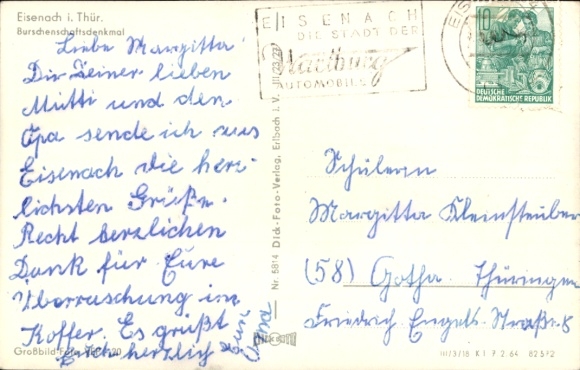 Eisenach i. Thür.
Burschenschaftsdenkmal
Liebe Margitta!
Dir, Deiner lieben
Mutti und dem
Opa sende ich aus
Eisenach die herz-
lichsten Grüße.
Recht herzlichen
Dank für Eure
Überraschung im
Koffer. Es grüßt
Euch herzlich
Großbild Foto
Nr 6814 Dick-Foto-Verlag, Erlbach i. V. III/23/27
EISENACH
DIE STADT DER
Wartburg
AUTOMOBILE
10
DEUTSCHE
DEMOKRATISCHE REPUBLIK
Schülerin
Margitta Kleinsteuber
(58) Gotha. Thüringen
Friedrich Engels-Straße 8
III/3/18 K 1 P 2.64 82572